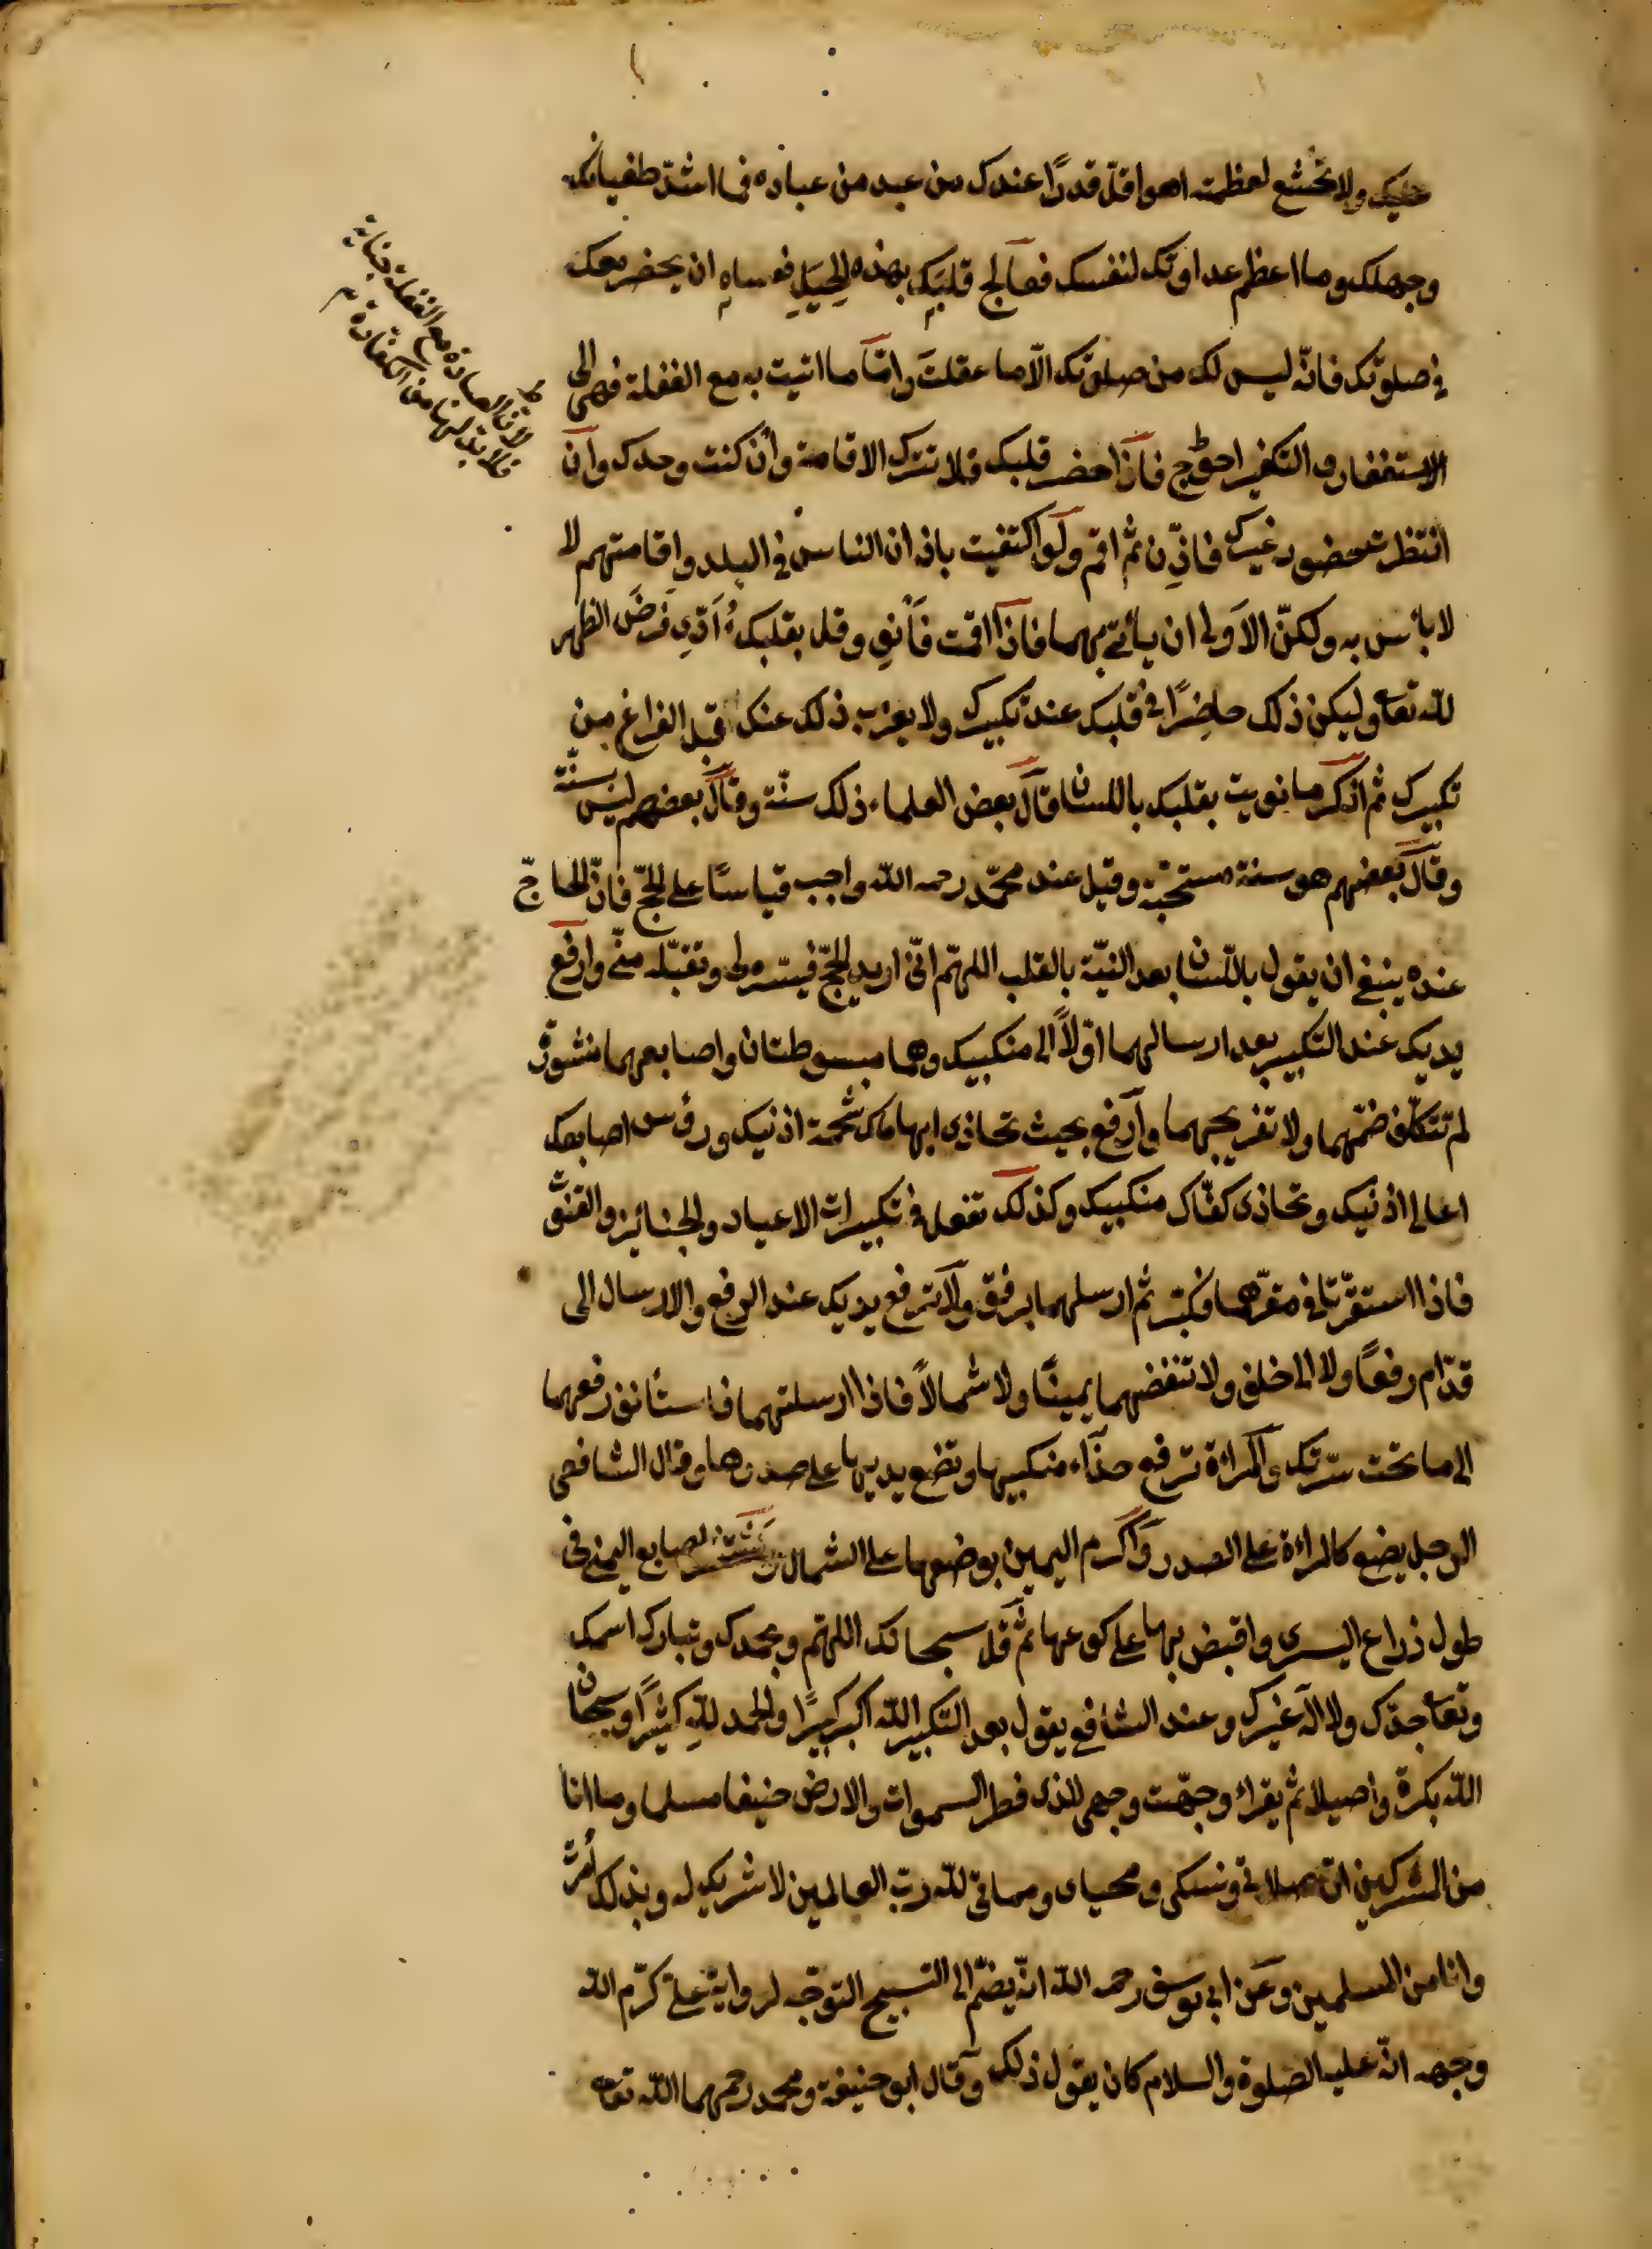 عليك ولا تخشع لعظمته اهو اقلّ قدرًا عندك من عبد من عباده فما اشدّ طغيانك
وجهلك وما اعظم عداوتك لنفسك فعالج قلبك بهذه الحِيَلِ فعساه ان يحضر معك
في صلوتك فانّه ليس لك من صلوتك الّا ما عقلتَ وامّا ما اتيت به مع الغفلة فهى الى
الاستغفار و التكفير احوج فاذا حضر قلبك فلا تترك الاقامة وان كنت وحدك وان
انتظرت حضور غيرك فاذّن ثم اقم ولو اكتفيت باذان الناس في البلد واقامتهم لا
لا بأس به ولكنّ الاَولى ان يأتى بهما فاذا اقمت فَأنوِ وقل بقلبك اُؤَدّى فرضَ الظهر
لله تعا وليكن ذلك حاضِرًا في قلبك عند تكبيرك ولا يعزب ذلك عنك قبل الفراغ من
تكبيرك ثم اذكر ما نويت بقلبك باللسان قال بعض العلماء ذلك سنّة وقال بعضهم ليس بسنّة
وقال بعضهم هو سنة مستحبّة وقيل عند محمّد رحمه الله واجب قياسًا على الحجّ فانّ الحاجّ
عنده ينبغى ان يقول باللّسان بعد النيّة بالقلب اللهمّ انّى اريد الحجّ فيسّره لى وتقبّله منّى وارفع
يديك عند التكبير بعد ارسالهما اوّلاً الى منكبيك وهما مبسوطتان واصابعهما منشورة
لم تتكلّف ضمّهما ولا تفريجهما وارفع بحيث تحاذى ابهاماك شحمة اذنيك ورؤس اصابعك
اعالى اذنيك وتحاذى كفّاك منكبيك وكذلك تفعل في تكبيرات الاعياد والجنائز والقنوت
فاذا استقرّتا في مقرّهما فكبّر ثم ارسلهما برفق ولا ترفع يديك عند الرفع والارسال الى
قدّام رفعًا ولا الى خلف ولا تنفضهما يمينًا ولا شمالاً فاذا ارسلتهما فاستأنف رفعهما
الى ما تحت سرّتك والمراة ترفع حذاء منكبيها وتضع يديها على صدرها وقال الشافعى
الرجل يضع كالمراءة على الصدر واكرم اليمين بوضعها على الشمال وتنشر اصابع اليمنى في
طول ذراع اليسرى واقبض بها على كوعها ثم قل سبحانك اللهمّ وبحمدك وتبارك اسمك
وتعا جدّك ولا اله غيرك وعند الشافعى يقول بعد التكبير الله اكبر كبيرًا والحمد للهِ كثيرًا وسبحان
الله بكرة واصيلا ثم يقراء وجّهت وجهى للذى فطر السموات والارض حنيفا مسلما وما انا
من المشركين انّ صلاتى ونسكى ومحياى ومماتى لله ربّ العالمين لا شريك له وبذلك اُمرت
وانا من المسلمين وعن ابى يوسف رحمه الله انّه يضمّ الى التسبيح التوجّه لرواية علىّ كرّم الله
وجهه انّه عليه الصلوة والسلام كان يقول ذلك وقال ابو حنيفة ومحمد رحمهما الله تعا
لانّ الصلوة مع الغفلة جناية
فلا بدّ لها من الكفّارة